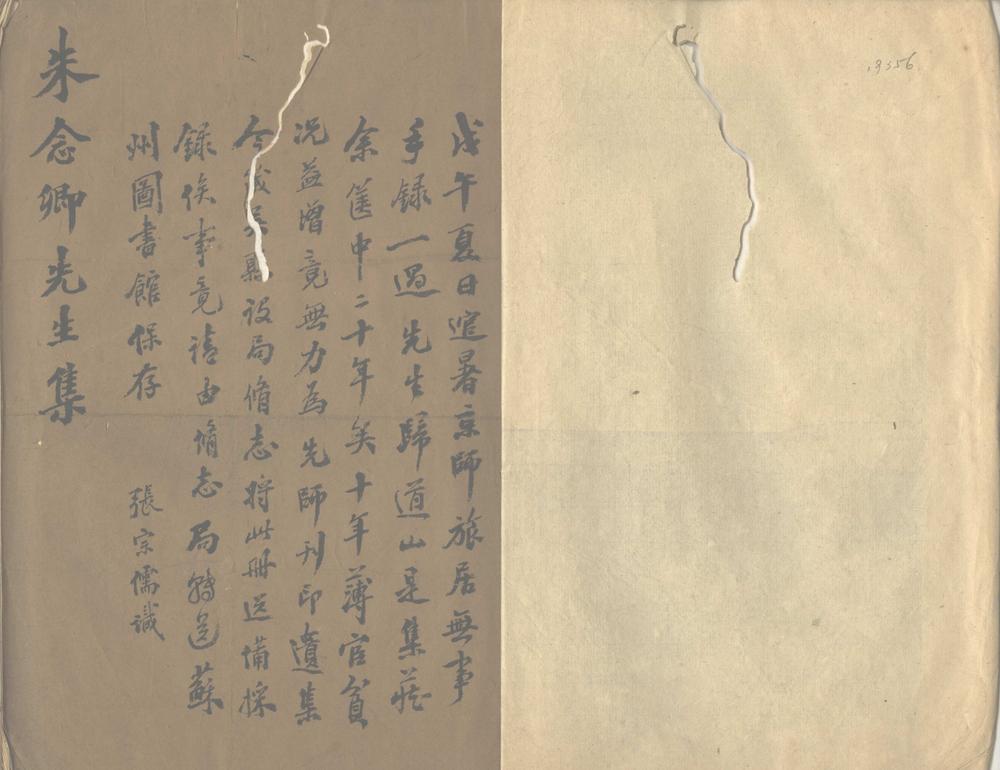 戊午夏日逭暑京師旅居無事
手録一過先生歸道山是集藏
余篋中二十年矣十年薄宦貧
況益增竟無力為先師刊印遺集
今歲吳縣設局脩志將此冊送備採
録俟事竟請由脩志局轉送蘇
州圖書館保存
張宗儒識
朱念卿先生集